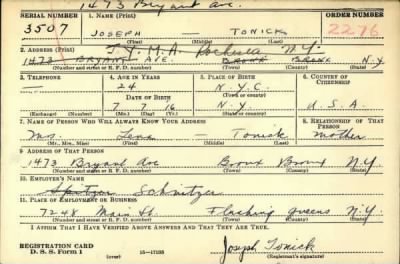 1473 Bryant ave.
SERIAL NUMBER 1. NAME (Print) ORDER NUMBER
3507 JOSEPH — TONICK 2276
(First) (Middle) (Last)
2. ADDRESS (Print) Y.M.A. N.Y.
1473 BRYANT AVE. BRONX BRONX N.Y
(Number and street or R. F. D. number) (Town) (County) (State)
3. TELEPHONE 4. AGE IN YEARS 5. PLACE OF BIRTH 6. COUNTRY OF CITIZENSHIP
— 24 N.Y.C.
DATE OF BIRTH (Town or county)
7 7 16 N.Y U.S.A.
(Exchange) (Number) (Mo.) (Day) (Yr.) (State or country)
7. NAME OF PERSON WHO WILL ALWAYS KNOW YOUR ADDRESS 8. RELATIONSHIP OF THAT PERSON
Mrs. Lena — Tonick mother
(Mr., Mrs., Miss) (First) (Middle) (Last)
9. ADDRESS OF THAT PERSON
1473 Bryant Ave Bronx Bronx N.Y
(Number and street or R. F. D. number) (Town) (County) (State)
10. EMPLOYER'S NAME
Spitzer Schnitzer
11. PLACE OF EMPLOYMENT OR BUSINESS
7248 Main St. Flushing queens N.Y.
(Number and street or R. F. D. number) (Town) (County) (State)
I AFFIRM THAT I HAVE VERIFIED ABOVE ANSWERS AND THAT THEY ARE TRUE.
REGISTRATION CARD
D. S. S. Form 1 Joseph Tonick
(Registrant's signature)